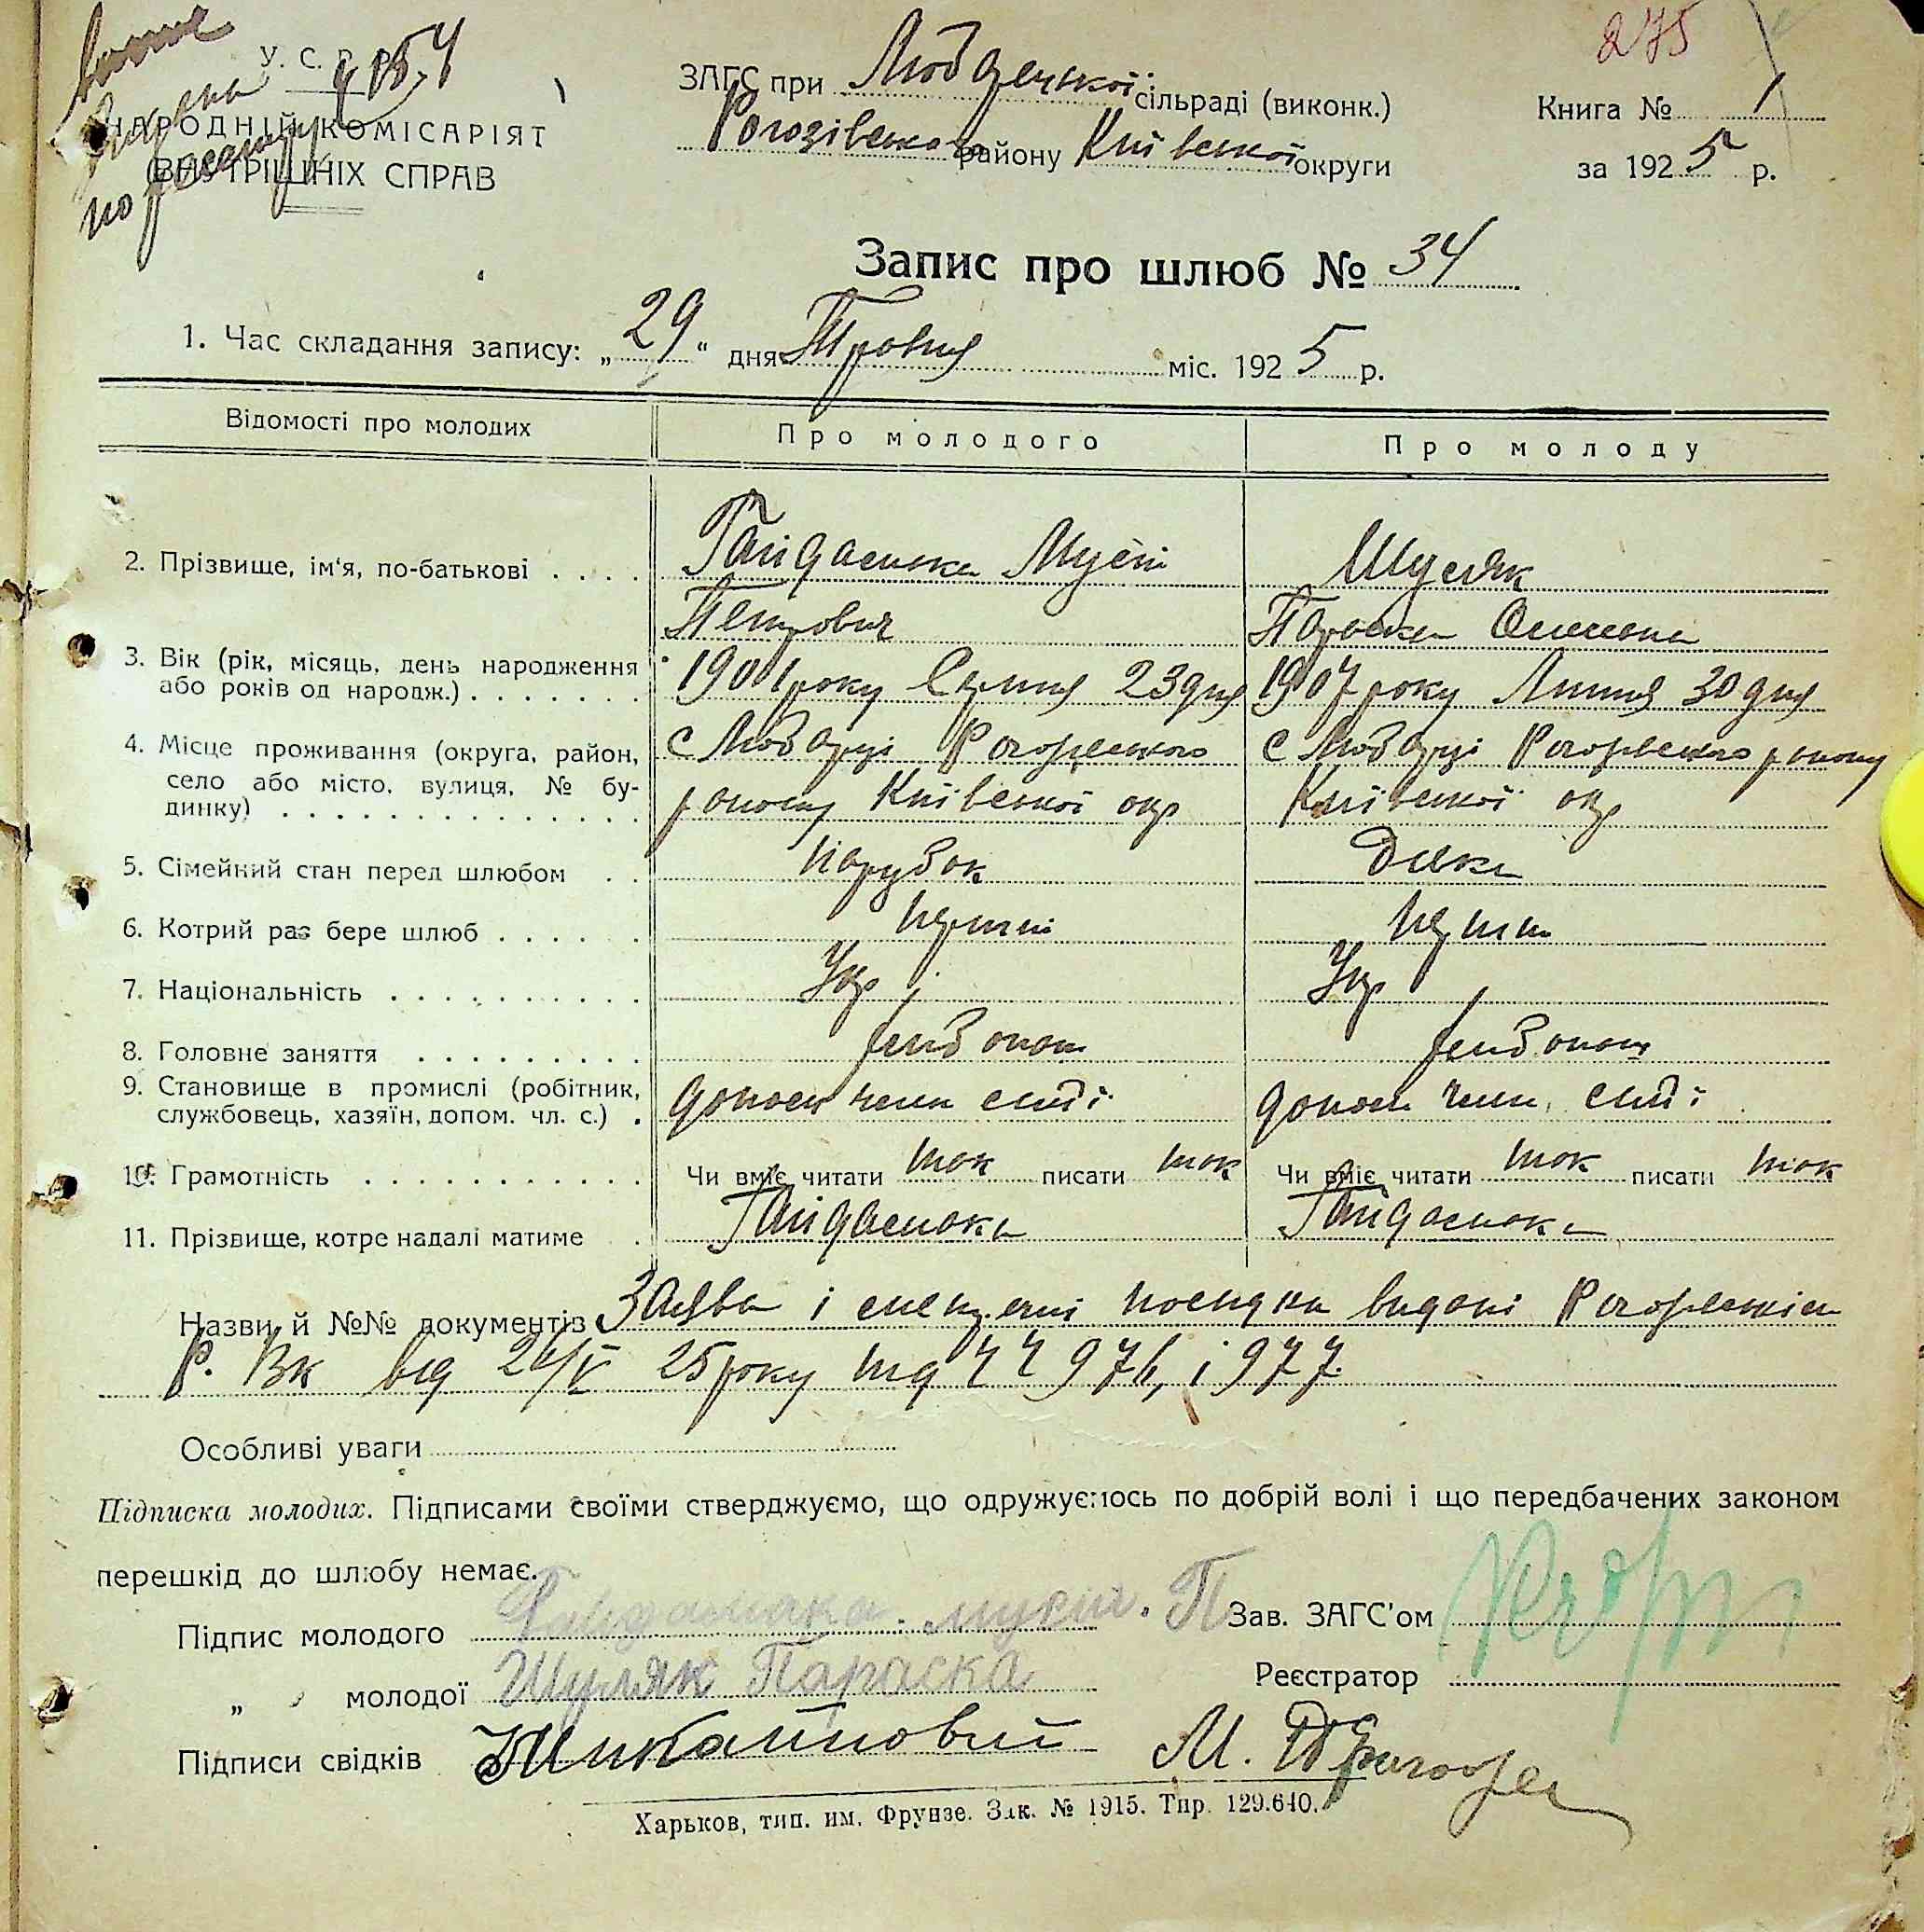 275
У. С. Р. Р.
НАРОДНІЙ КОМІСАРІЯТ
ВНУТРІШНІХ СПРАВ
ЗАГС при Любарецької сільраді (виконк.)
Рогозівського району Київської округи
Книга № 1
за 1925 р.
Запис про шлюб № 34
1. Час складання запису: „29“ дня Травня міс. 1925 р.
Відомості про молодих
Про молодого
Про молоду
2. Прізвище, ім'я, по-батькові . . . .
Гайдамака Мусій
Петрович
Шуляк
Параска
3. Вік (рік, місяць, день народження
або років од народж.) . . . . . . .
1901 року Серпня 23 дня
1907 року Липня 30 дня
4. Місце проживання (округа, район,
село або місто, вулиця, № бу-
динку) . . . . . . . . . . . . . .
с Любарці Рогозівського
району Київської окр
с Любарці Рогозівського району
Київської окр
5. Сімейний стан перед шлюбом . .
парубок
Дівка
6. Котрий раз бере шлюб . . . . . .
перший
перший
7. Національність . . . . . . . . . .
Укр
Укр
8. Головне заняття . . . . . . . . .
хлібопаш
хлібопаш
9. Становище в промислі (робітник,
службовець, хазяїн, допом. чл. с.) .
допом член сімї
допом член сімї
10. Грамотність . . . . . . . . . . .
Чи вміє читати так писати так
Чи вміє читати так писати так
11. Прізвище, котре надалі матиме .
Гайдамака
Гайдамака
Назви й №№ документів Заява і посвідки видані Рогозівським
Р. Вк від 25 року під 976, і 977
Особливі уваги
Підписка молодих. Підписами своїми стверджуємо, що одружуємось по добрій волі і що передбачених законом
перешкід до шлюбу немає.
Підпис молодого Гайдамака. мусій. П
Зав. ЗАГС'ом
„ молодої Шуляк Параска
Реєстратор
Підписи свідків
Харьков, тип. им. Фрунзе. Зак. № 1915. Тир. 129.640.